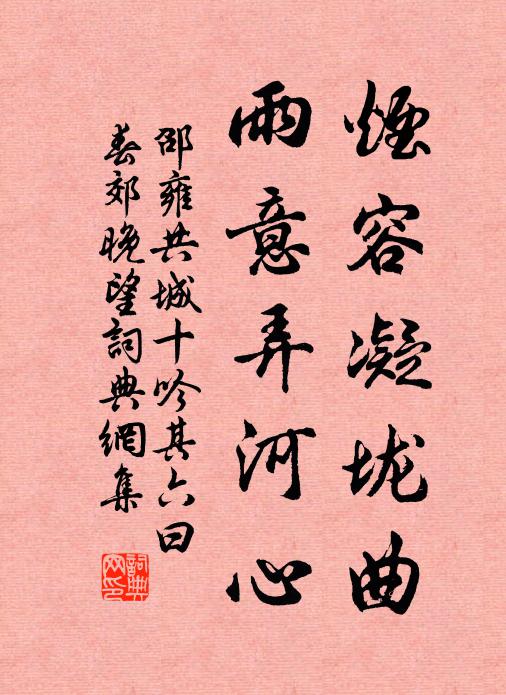 煙容凝垅曲
雨意弄河心
邵雍共城十吟其六曰
春郊晚望詞典網集
詞典网印